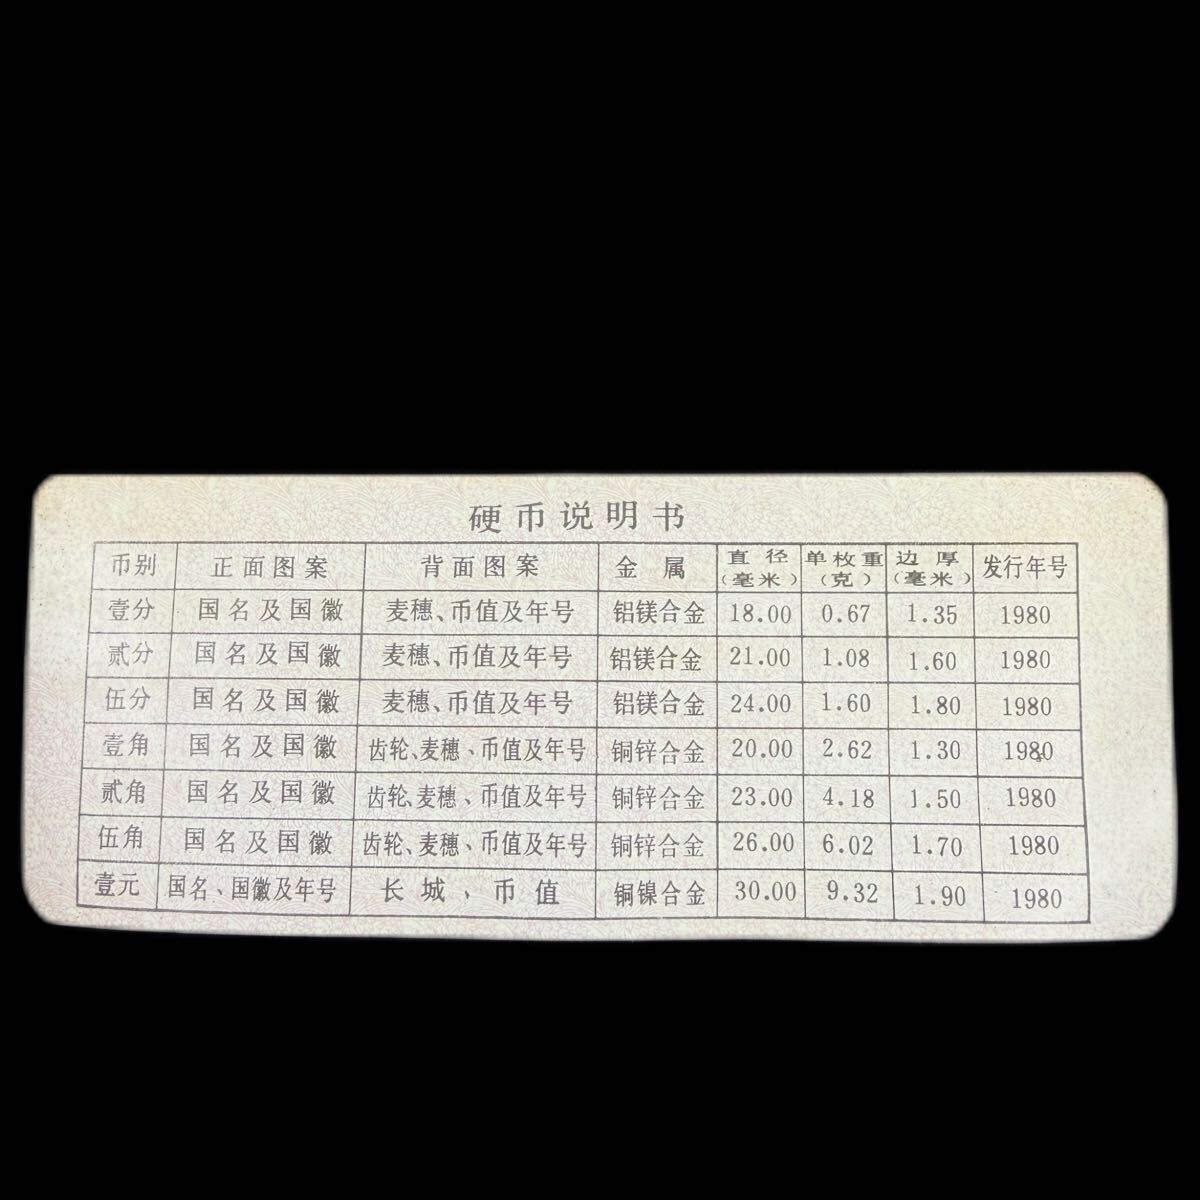 硬币说明书
币别 正面图案 背面图案 金属 直径(毫米) 单枚重(克) 边厚(毫米) 发行年号
壹分 国名及国徽 麦穗、币值及年号 铝镁合金 18.00 0.67 1.35 1980
贰分 国名及国徽 麦穗、币值及年号 铝镁合金 21.00 1.08 1.60 1980
伍分 国名及国徽 麦穗、币值及年号 铝镁合金 24.00 1.60 1.80 1980
壹角 国名及国徽 齿轮、麦穗、币值及年号 铜锌合金 20.00 2.62 1.30 1980
贰角 国名及国徽 齿轮、麦穗、币值及年号 铜锌合金 23.00 4.18 1.50 1980
伍角 国名及国徽 齿轮、麦穗、币值及年号 铜锌合金 26.00 6.02 1.70 1980
壹元 国名、国徽及年号 长城、币值 铜镍合金 30.00 9.32 1.90 1980